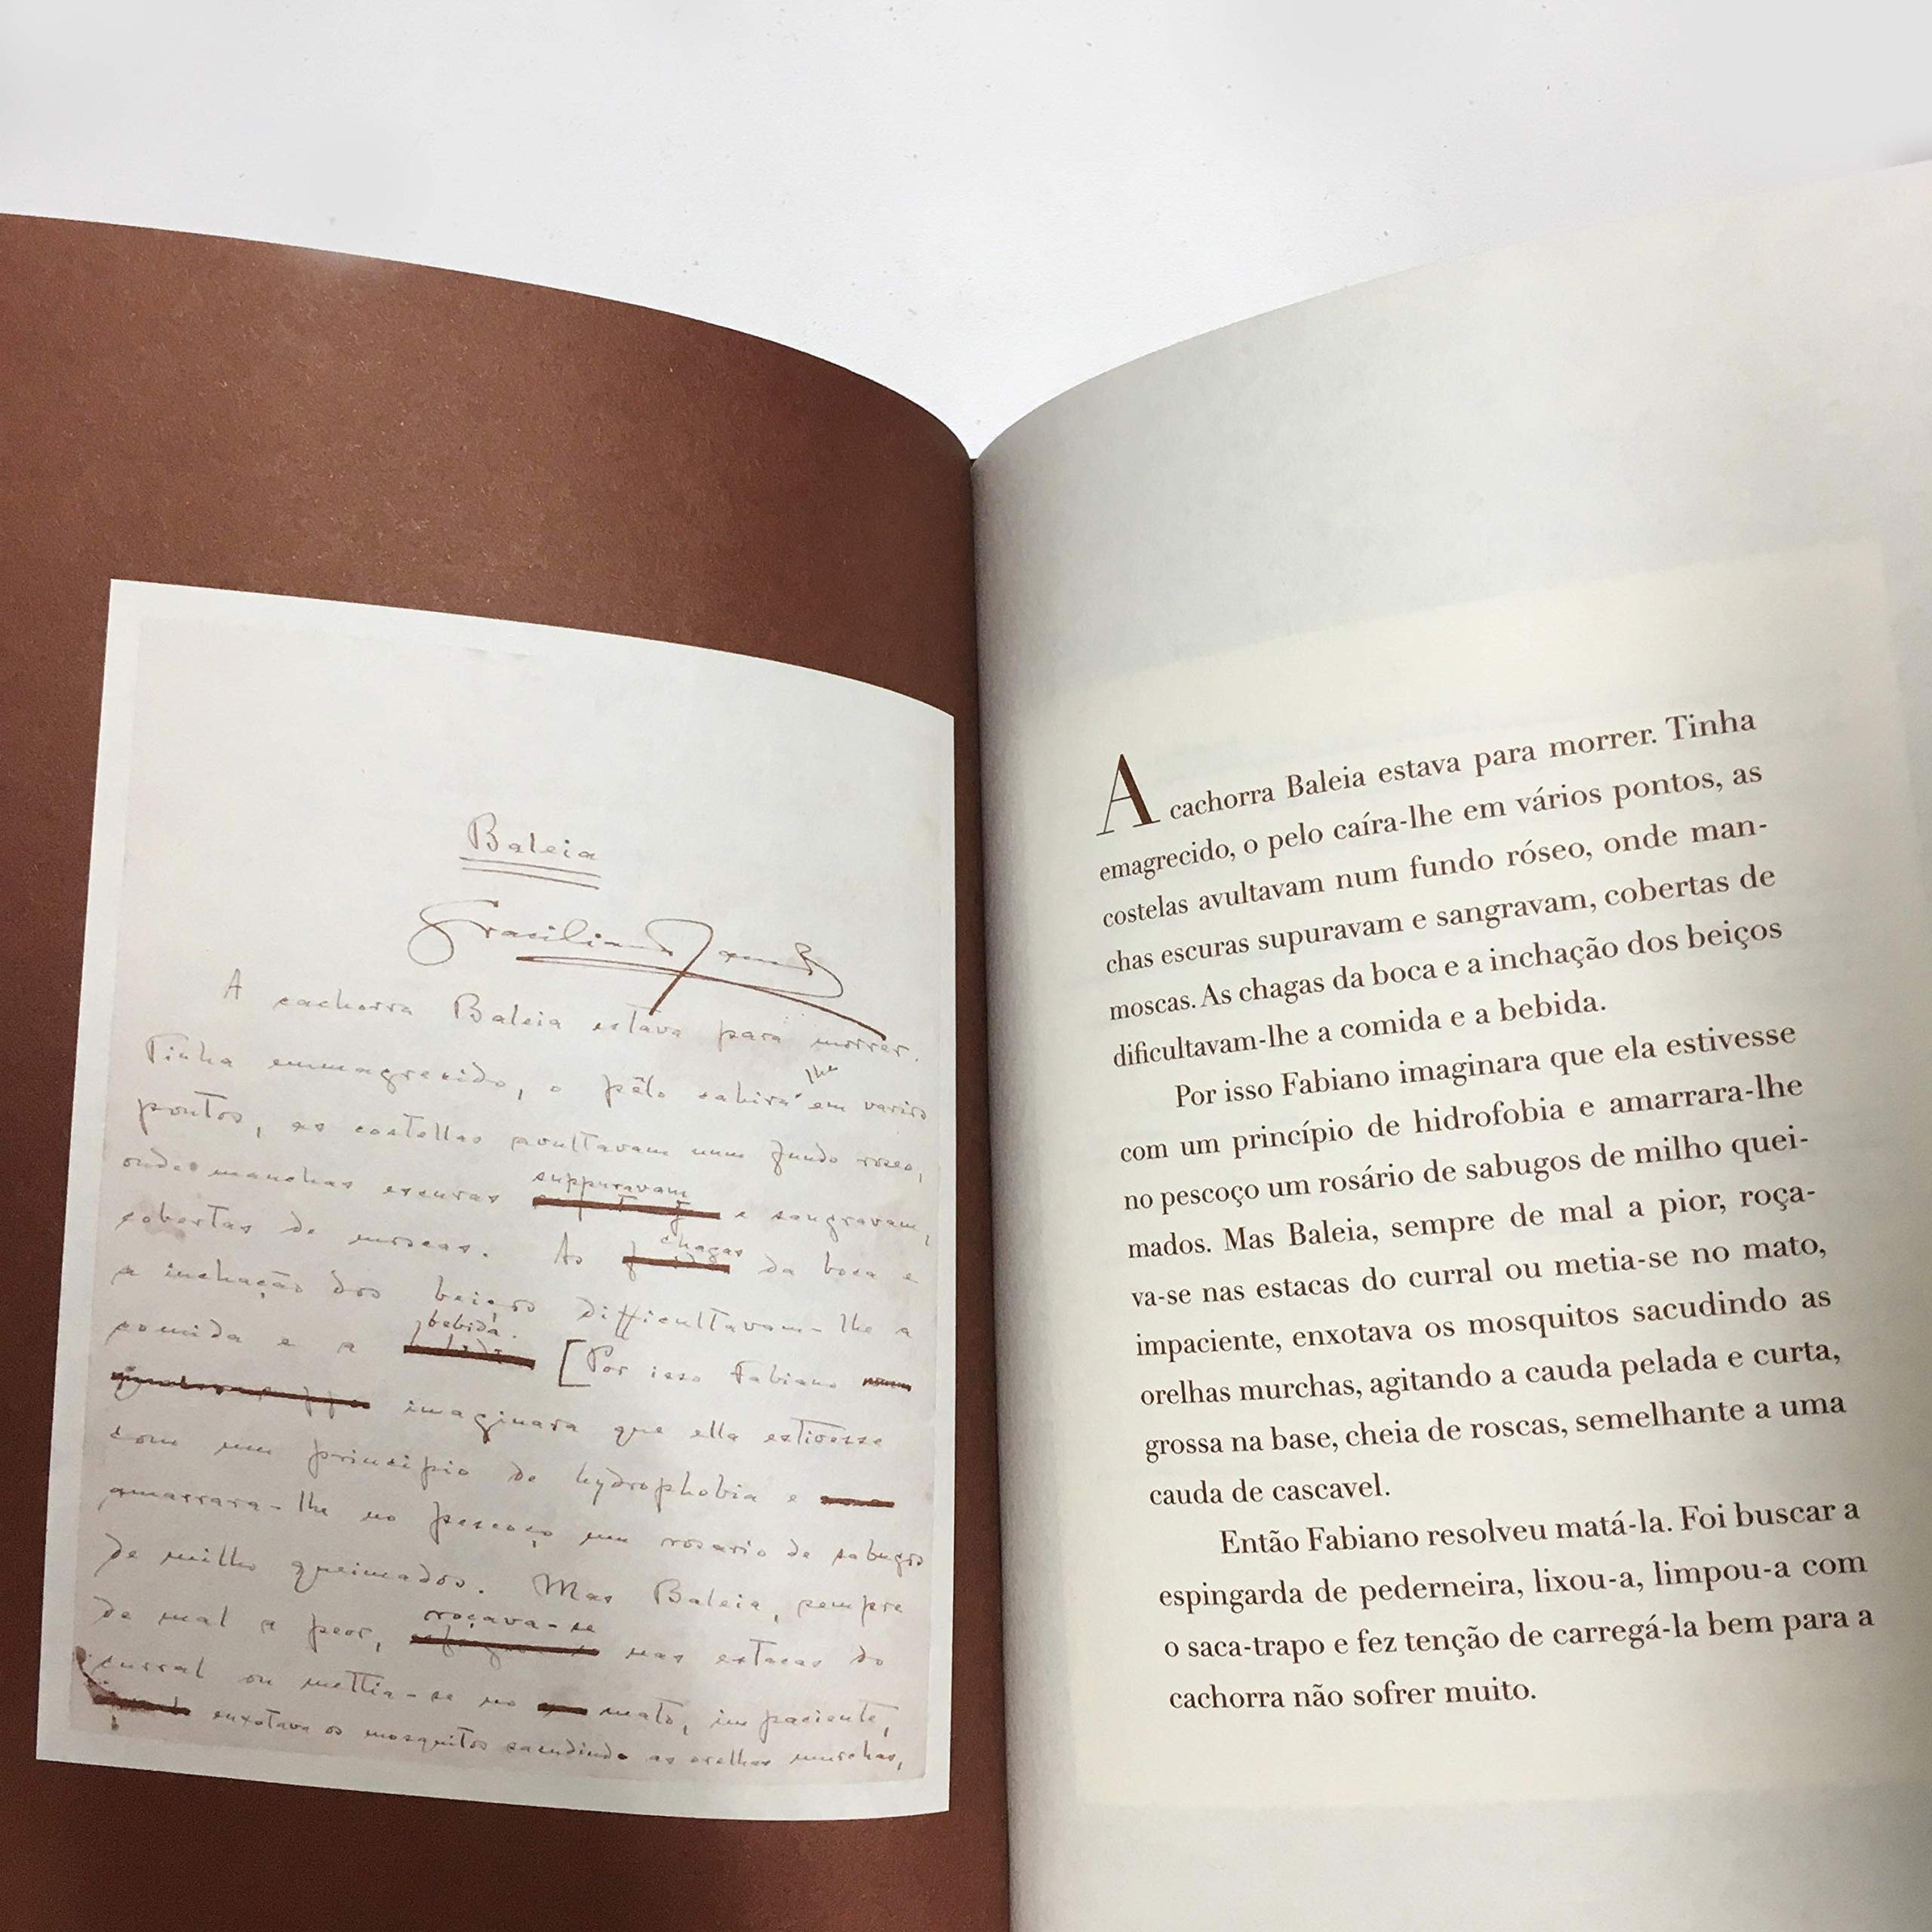 Baleia
Graciliano Ramos
A cachorra Baleia estava para morrer.
Tinha emmagrecido, o pêlo cahira lhe em varios
pontos, as costellas avultavam num fundo roseo,
onde manchas escuras suppuravam e sangravam,
cobertas de moscas. As chagas da boca e
a inchação dos beiços difficultavam-lhe a
comida e a bebida. [Por isso Fabiano
imaginara que ella estivesse
com um principio de hydrophobia e
amarrara-lhe no pescoço um rosario de sabugos
de milho queimados. Mas Baleia, sempre
de mal a peor, roçava-se nas estacas do
curral ou mettia-se no mato, impaciente,
enxotava os mosquitos sacudindo as orelhas murchas,
A cachorra Baleia estava para morrer. Tinha
emagrecido, o pelo caíra-lhe em vários pontos, as
costelas avultavam num fundo róseo, onde man-
chas escuras supuravam e sangravam, cobertas de
moscas. As chagas da boca e a inchação dos beiços
dificultavam-lhe a comida e a bebida.
Por isso Fabiano imaginara que ela estivesse
com um princípio de hidrofobia e amarrara-lhe
no pescoço um rosário de sabugos de milho quei-
mados. Mas Baleia, sempre de mal a pior, roça-
va-se nas estacas do curral ou metia-se no mato,
impaciente, enxotava os mosquitos sacudindo as
orelhas murchas, agitando a cauda pelada e curta,
grossa na base, cheia de roscas, semelhante a uma
cauda de cascavel.
Então Fabiano resolveu matá-la. Foi buscar a
espingarda de pederneira, lixou-a, limpou-a com
o saca-trapo e fez tenção de carregá-la bem para a
cachorra não sofrer muito.